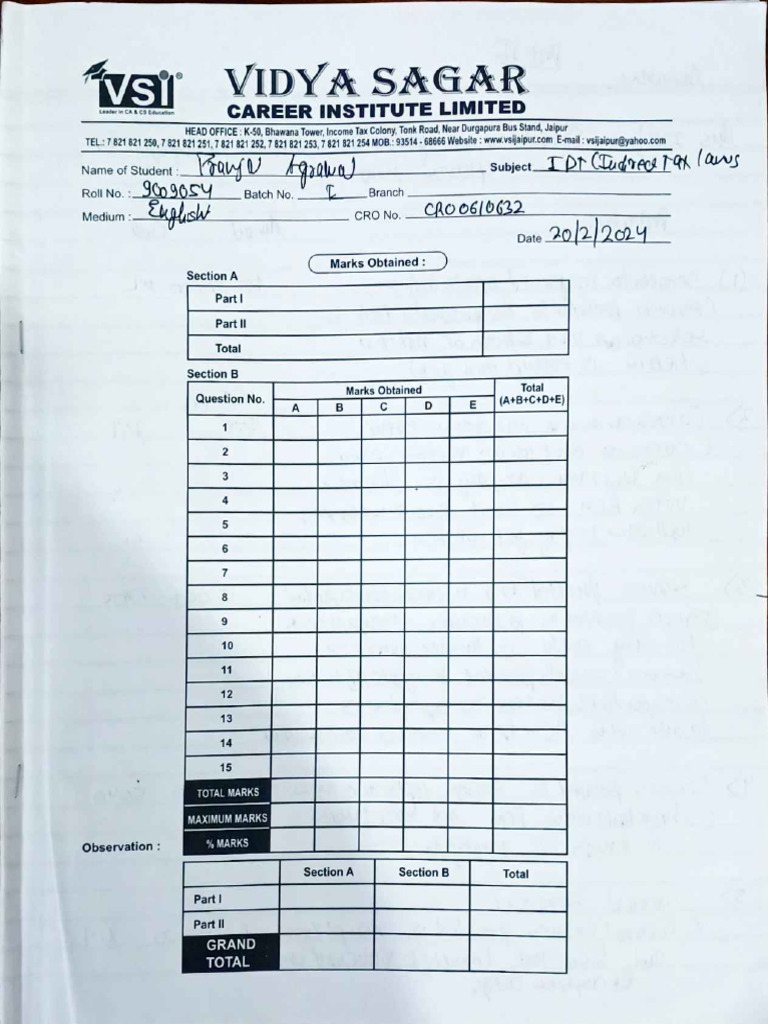 VSI®
Leader in CA & CS Education
VIDYA SAGAR
CAREER INSTITUTE LIMITED
HEAD OFFICE : K-50, Bhawana Tower, Income Tax Colony, Tonk Road, Near Durgapura Bus Stand, Jaipur
TEL.: 7 821 821 250, 7 821 821 251, 7 821 821 252, 7 821 821 253, 7 821 821 254 MOB.: 93514 - 68666 Website : www.vsijaipur.com E-mail : vsijaipur@yahoo.com
Name of Student : Agrawal Subject IDT (Indirect Tax laws
Roll No. : 9009054 Batch No. I Branch
Medium : English CRO No. CRO0610632
Date 20/2/2024
Marks Obtained :
Section A
Part I
Part II
Total
Section B
Question No. Marks Obtained Total
A B C D E (A+B+C+D+E)
1
2
3
4
5
6
7
8
9
10
11
12
13
14
15
TOTAL MARKS
MAXIMUM MARKS
% MARKS
Observation :
Section A Section B Total
Part I
Part II
GRAND
TOTAL